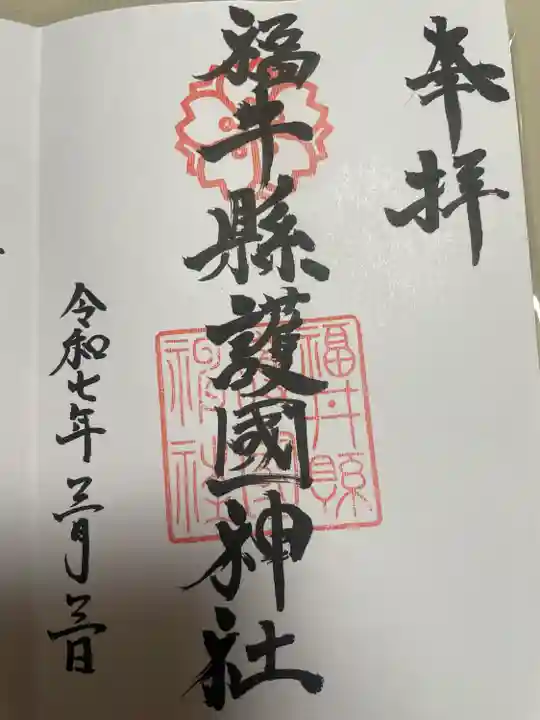 奉拝
福井縣護國神社
福井縣護國神社
令和七年三月三日